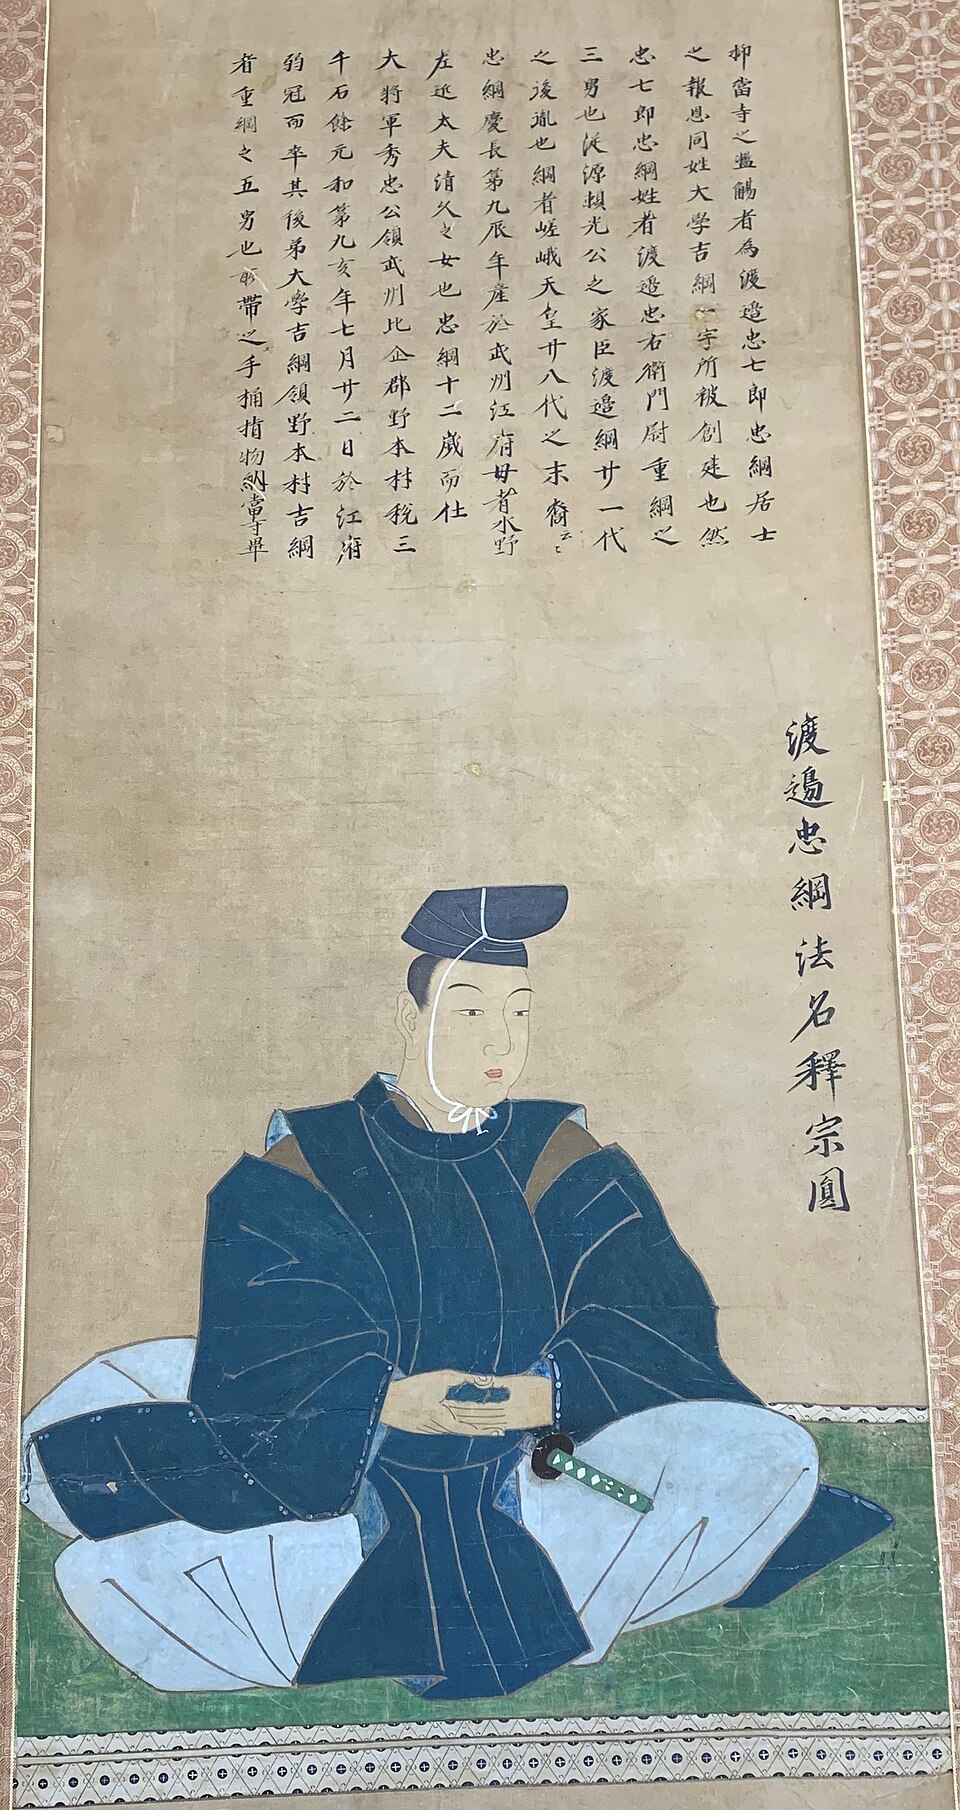 抑當寺之濫觴者為渡邉忠七郎忠綱居士
之報恩同姓大學吉綱一宇所被創建也然
忠七郎忠綱姓者渡邉忠右衛門尉重綱之
三男也従源頼光公之家臣渡邉綱廿一代
之後胤也綱者嵯峨天皇廿八代之末裔云々
忠綱慶長第九辰年産於武州江府母者水野
左近太夫清久之女也忠綱十二歳而仕
大将軍秀忠公領武州比企郡野本村税三
千石餘元和第九亥年七月廿二日於江府
弱冠而卒其後弟大學吉綱領野本村吉綱
者重綱之五男也所帶之手桶指物納當寺畢
渡邉忠綱法名釋宗圓